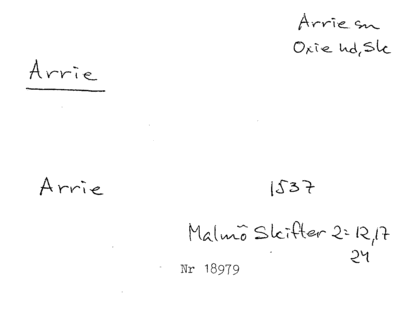 Arrie sn
Oxie hd, Sk
Arrie
Arrie 1537
Malmö Skifter 2:12,17
24
Nr 18979